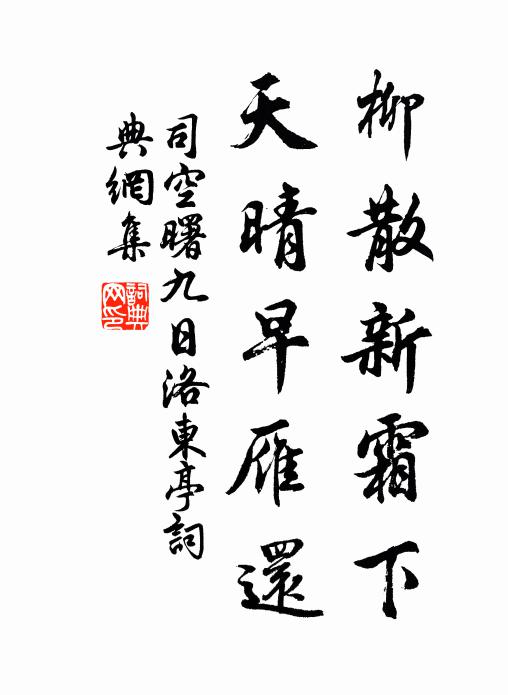 柳散新霜下
天晴早雁還
司空曙九日洛東亭詞
典網集
詞典網印